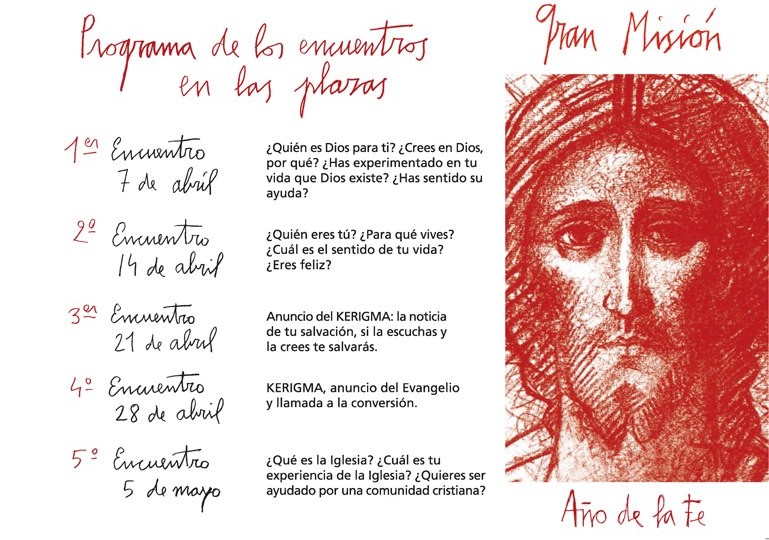 Programa de los encuentros
en las plazas
1er Encuentro
7 de abril
¿Quién es Dios para ti? ¿Crees en Dios,
por qué? ¿Has experimentado en tu
vida que Dios existe? ¿Has sentido su
ayuda?
2º Encuentro
14 de abril
¿Quién eres tú? ¿Para qué vives?
¿Cuál es el sentido de tu vida?
¿Eres feliz?
3er Encuentro
21 de abril
Anuncio del KERIGMA: la noticia
de tu salvación, si la escuchas y
la crees te salvarás.
4º Encuentro
28 de abril
KERIGMA, anuncio del Evangelio
y llamada a la conversión.
5º Encuentro
5 de mayo
¿Qué es la Iglesia? ¿Cuál es tu
experiencia de la Iglesia? ¿Quieres ser
ayudado por una comunidad cristiana?
Gran Misión
Año de la Fe